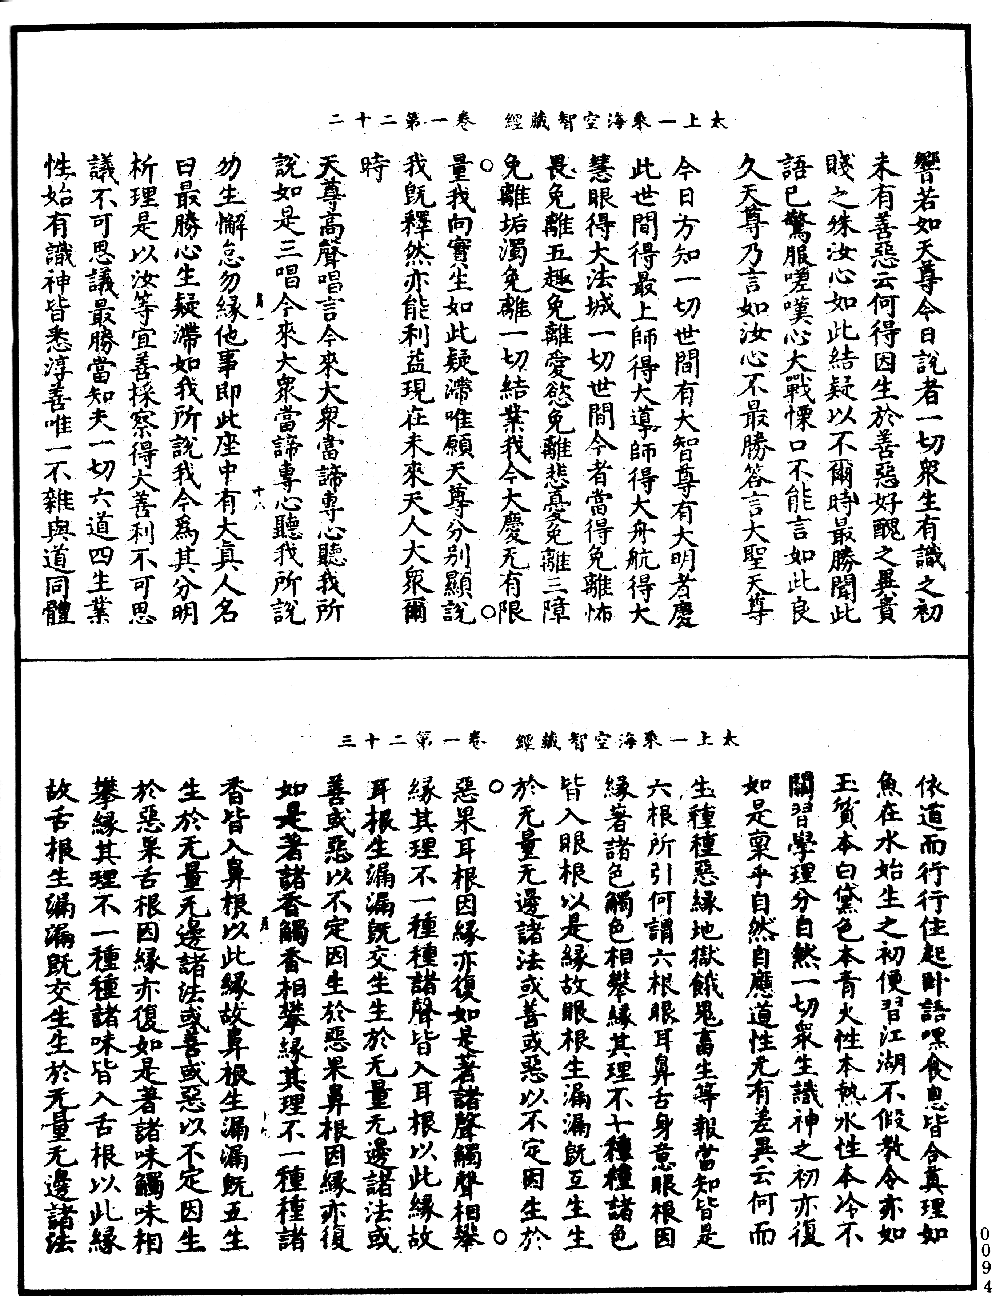 太上一乘海空智藏經　卷一第二十二
響若如天尊今日說者一切衆生有識之初
未有善惡云何得因生於善惡好醜之異貴
賤之殊汝心如此結疑以不爾時最勝聞此
語已驚服嗟嘆心大戰慄口不能言如此良
久天尊乃言如汝心不最勝答言大聖天尊
今日方知一切世間有大智尊有大明者慶
此世間得最上師得大導師得大舟航得大
慧眼得大法城一切世間今者當得免離怖
畏免離五趣免離愛慾免離悲憂免離三障
免離垢濁免離一切結業我今大慶无有限
量我向實生如此疑滯唯願天尊分別顯說
我既釋然亦能利益現在未來天人大衆爾
時
天尊高聲唱言今來大衆當諦專心聽我所
說如是三唱今來大衆當諦專心聽我所說
十六
勿生懈怠勿緣他事即此座中有大真人名
曰最勝心生疑滯如我所說我今爲其分明
析理是以汝等宜善採察得大善利不可思
議不可思議最勝當知夫一切六道四生業
性始有識神皆悉淳善唯一不雜與道同體
太上一乘海空智藏經　卷一第二十三
依道而行行住起卧語嘿食息皆合真理如
魚在水始生之初便習江湖不假教令亦如
玉質本白黛色本青火性本熱水性本冷不
關習學理分自然一切衆生識神之初亦復
如是稟乎自然自應道性无有差異云何而
生種種惡緣地獄餓鬼畜生等報當知皆是
六根所引何謂六根眼耳鼻舌身意眼根因
緣著諸色觸色相攀緣其理不十種種諸色
皆入眼根以是緣故眼根生漏漏既互生生
於无量无邊諸法或善或惡以不定因生於
惡果耳根因緣亦復如是著諸聲觸聲相攀
緣其理不一種種諸聲皆入耳根以此緣故
耳根生漏漏既交生生於无量无邊諸法或
善或惡以不定因生於惡果鼻根因緣亦復
如是著諸香觸香相攀緣其理不一種種諸
香皆入鼻根以此緣故鼻根生漏漏既五生
生於无量无邊諸法或善或惡以不定因生
於惡果舌根因緣亦復如是著諸味觸味相
攀緣其理不一種種諸味皆入舌根以此緣
故舌根生漏漏既交生生於无量无邊諸法
0094